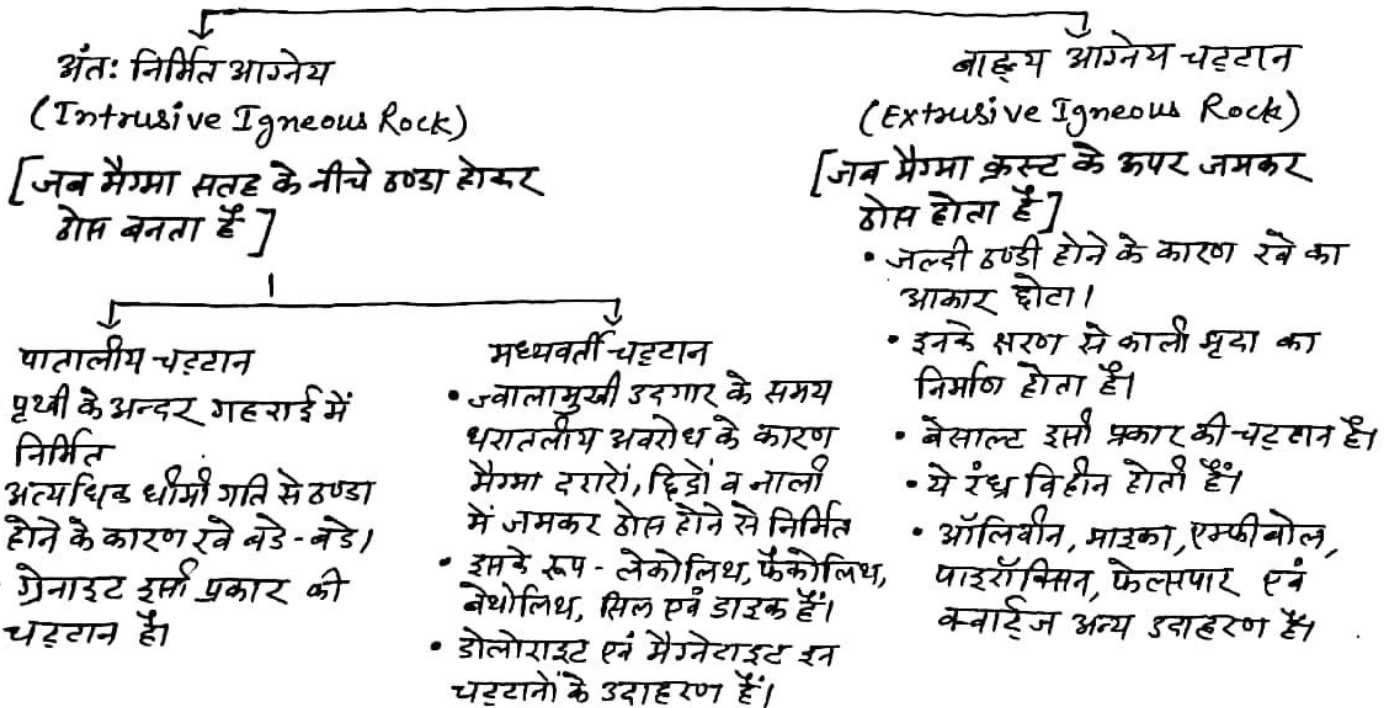 अंतः निर्मित आग्नेय
(Intrusive Igneous Rock)
[जब मैग्मा सतह के नीचे ठण्डा होकर
ठोस बनता है]
पातालीय चट्टान
पृथ्वी के अन्दर गहराई में
निर्मित
अत्यधिक धीमी गति से ठण्डा
होने के कारण रवे बडे-बडे।
ग्रेनाइट इसी प्रकार की
चट्टान है।
मध्यवर्ती चट्टान
• ज्वालामुखी उदगार के समय
धरातलीय अवरोध के कारण
मैग्मा दरारों, छिद्रों व नाली
में जमकर ठोस होने से निर्मित
• इसके रूप - लेकोलिथ, फैकोलिथ,
बेथोलिथ, सिल एवं डाइक हैं।
• डोलोराइट एवं मैग्नेटाइट इन
चट्टानों के उदाहरण हैं।
बाह्य आग्नेय चट्टान
(Extrusive Igneous Rock)
[जब मैग्मा क्रस्ट के ऊपर जमकर
ठोस होता है]
• जल्दी ठण्डी होने के कारण रवे का
आकार छोटा।
• इनके क्षरण से काली मृदा का
निर्माण होता है।
• बेसाल्ट इसी प्रकार की चट्टान है।
• ये रंध्र विहीन होती हैं।
• ऑलिवीन, माइका, एम्फीबोल,
पाइरॉक्सिन, फेल्सपार एवं
क्वार्ट्ज अन्य उदाहरण हैं।